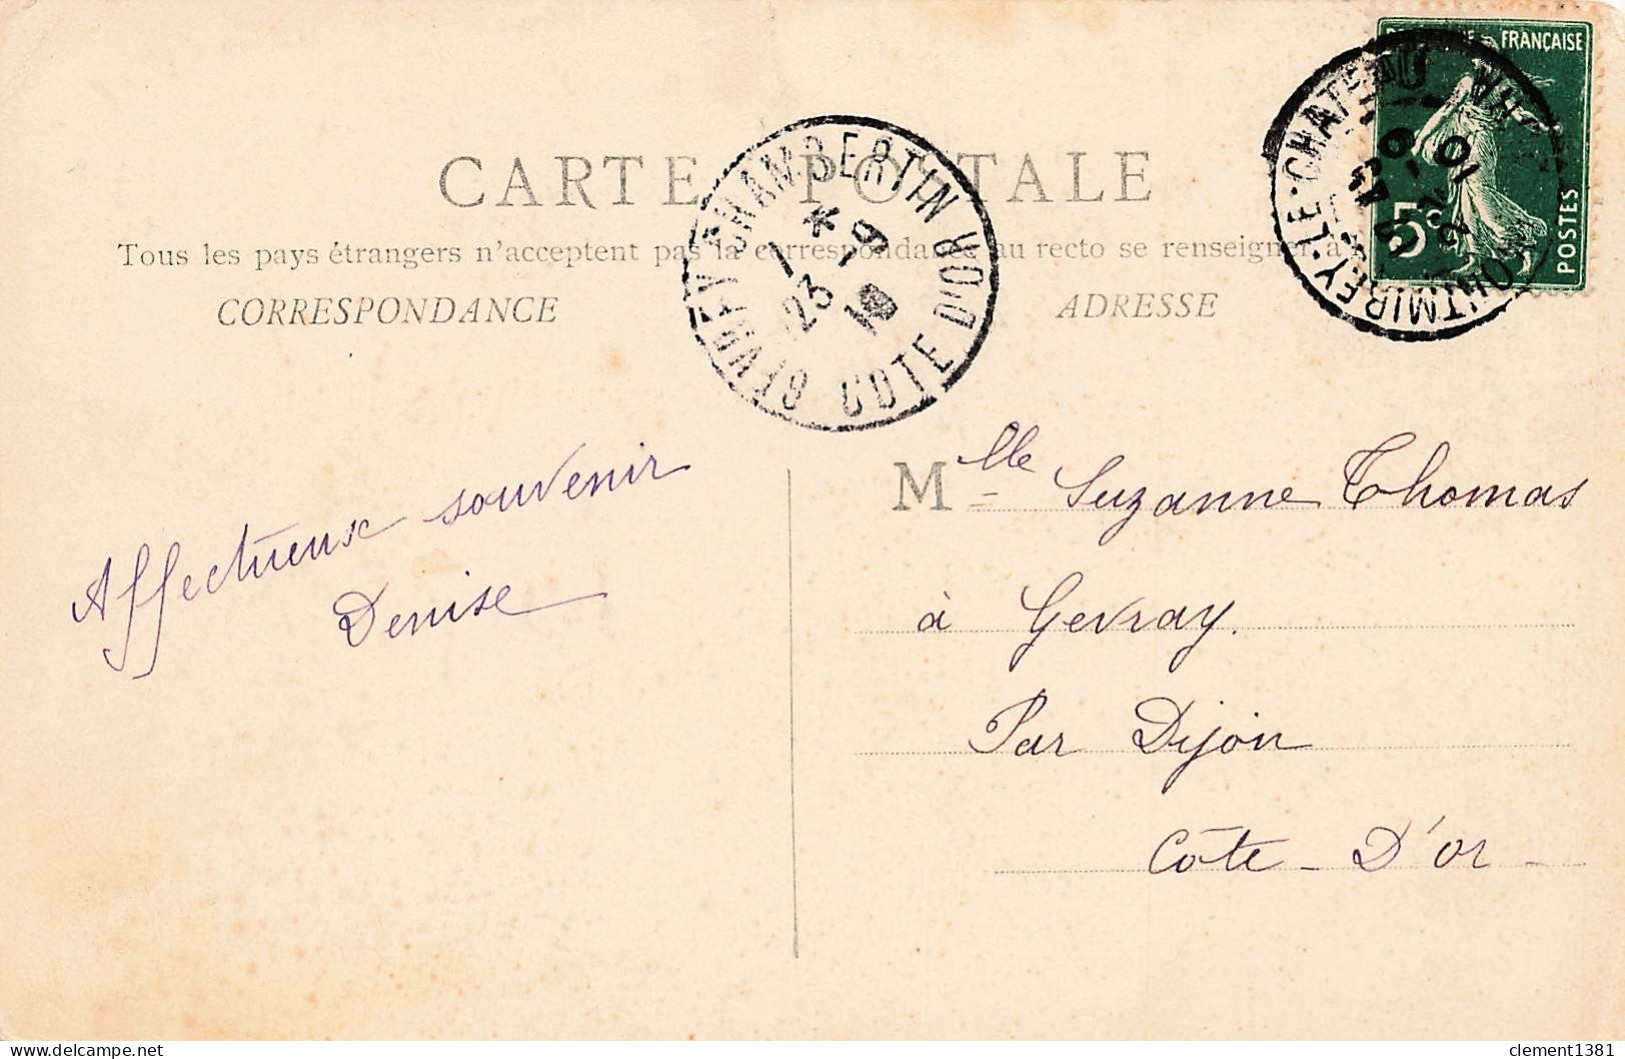 CARTE POSTALE
Tous les pays étrangers n'acceptent pas la correspondance au recto se renseigner à
CORRESPONDANCE
ADRESSE
FRANÇAISE
5c
POSTES
GEVREY CHAMBERTIN COTE D'OR
* 9
23 - 9
10
MONTMIREY-LE-CHATEAU
Affectueux souvenir
Denise
Mlle Suzanne Thomas
à Gevray.
Par Dijon
Côte - D'or -
clement1381